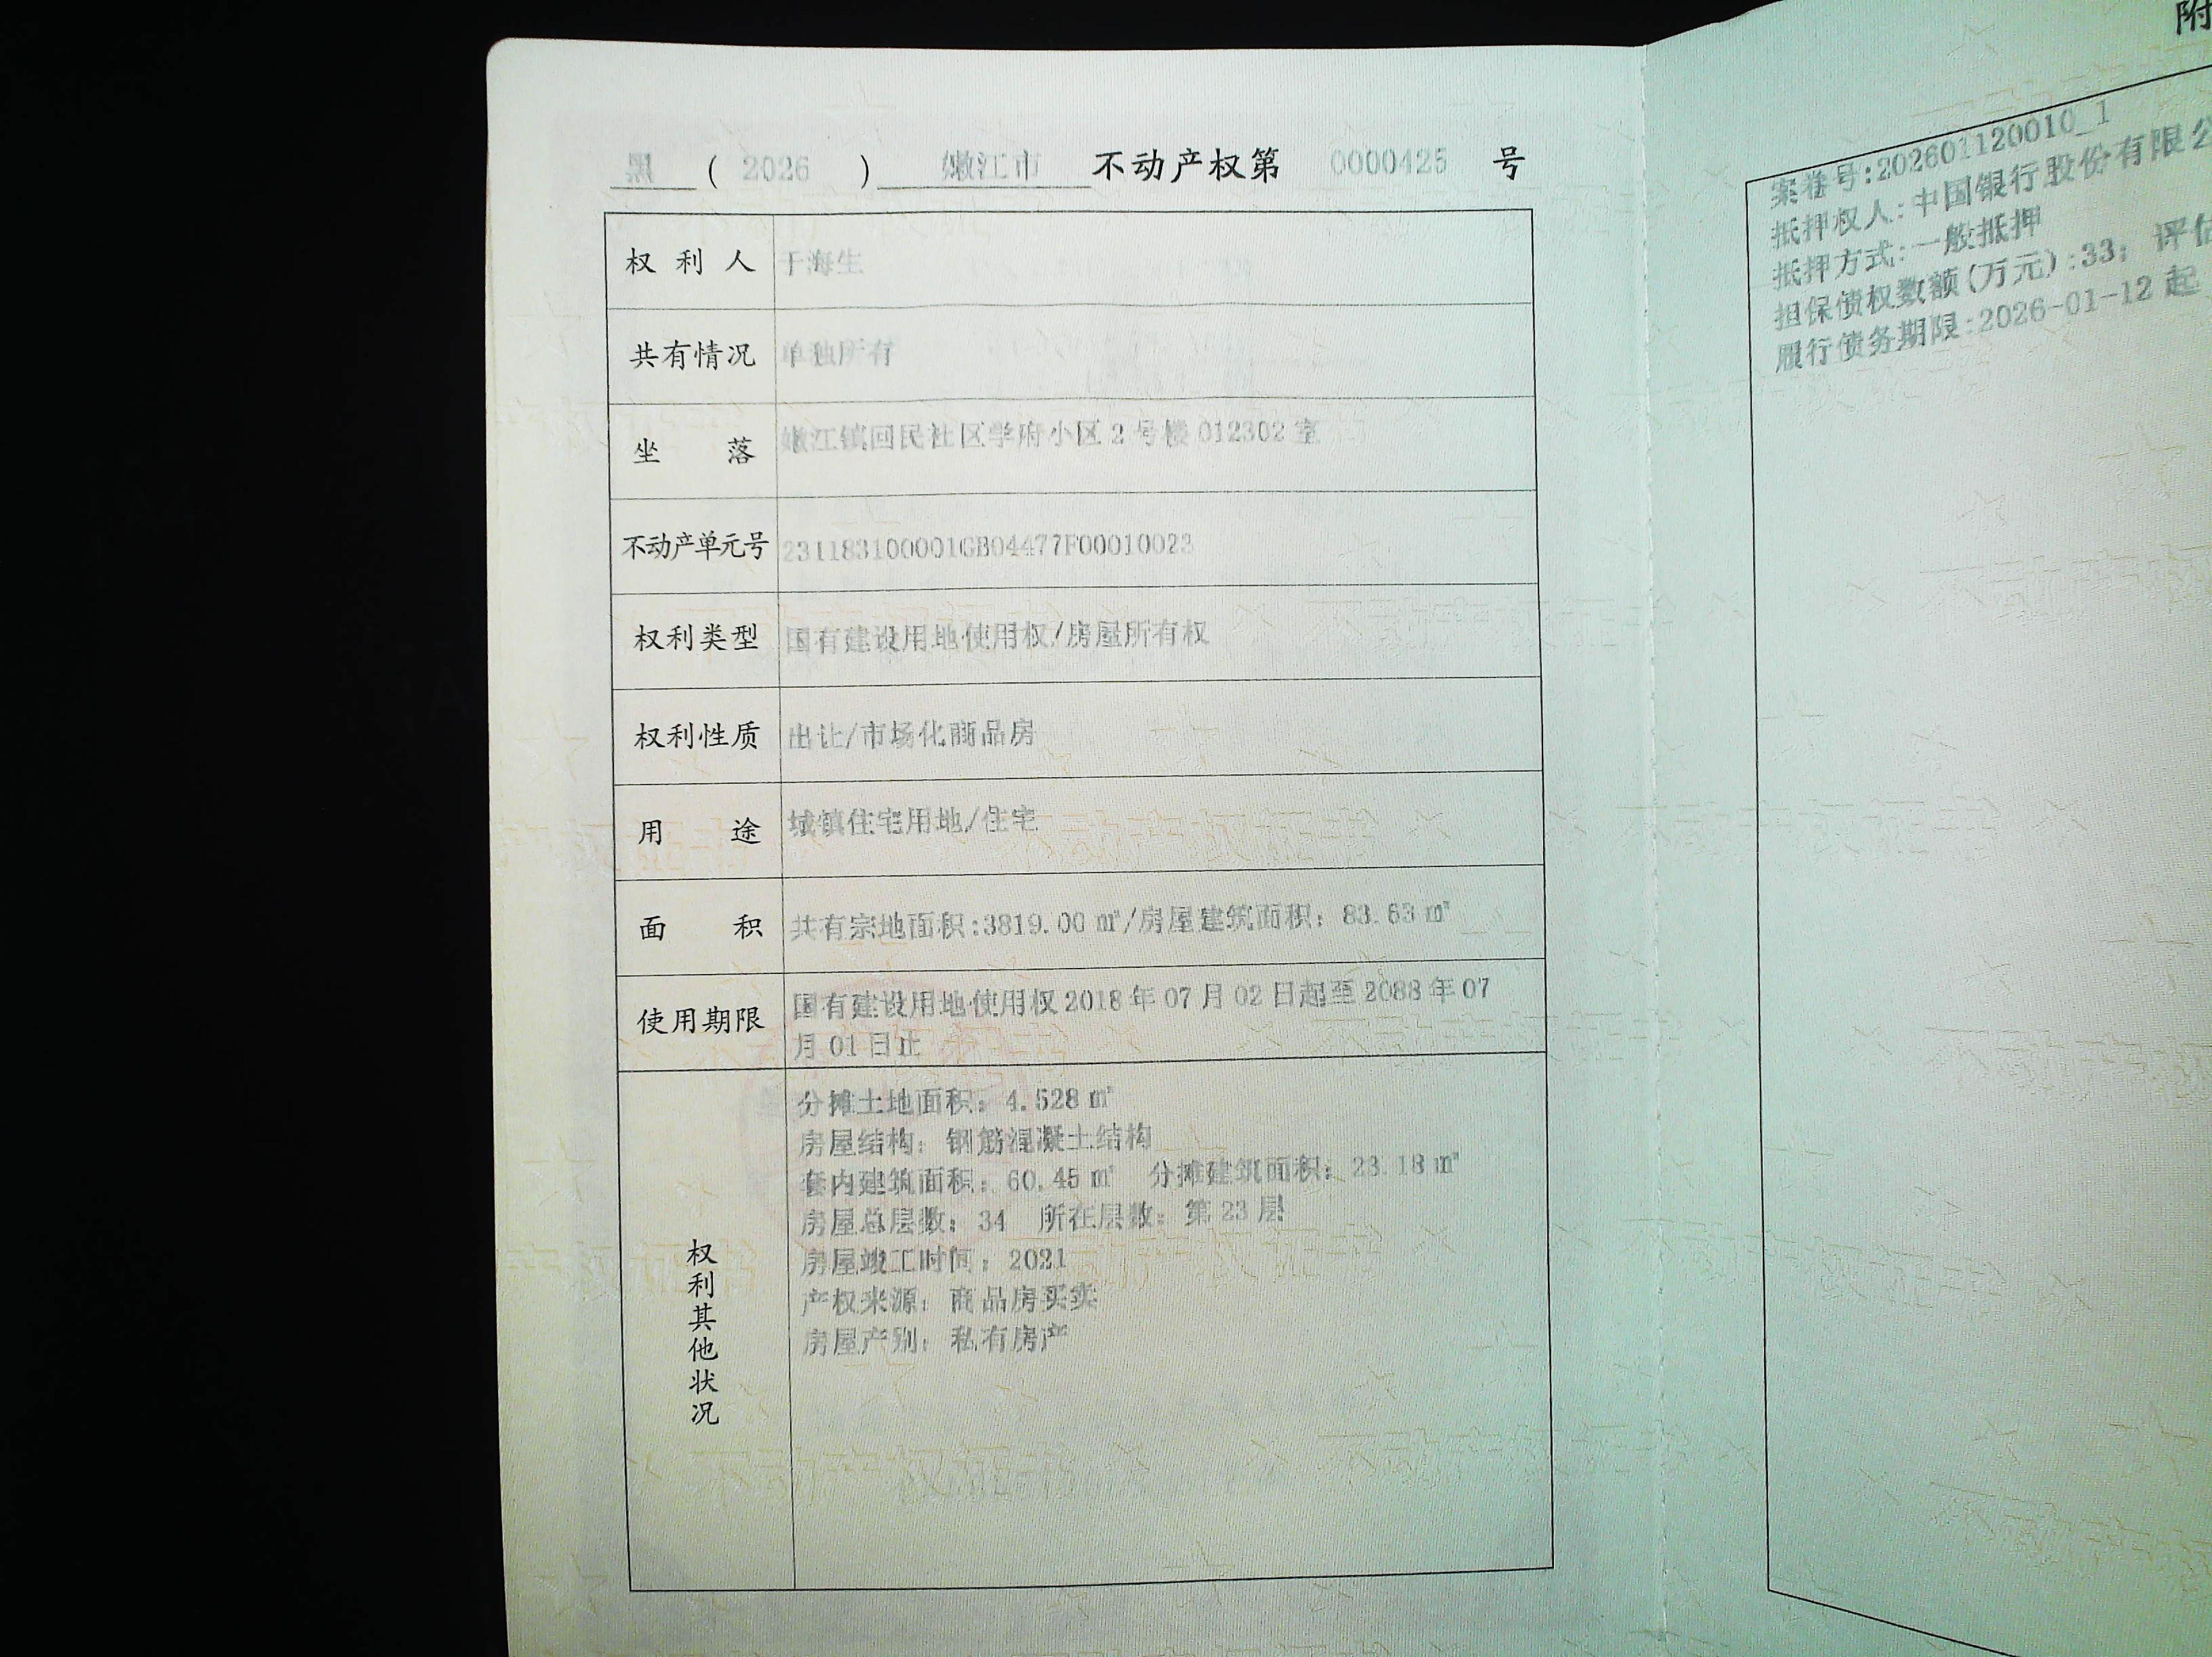 黑（2026）嫩江市 不动产权第 0000425 号
权利人 于海生
共有情况 单独所有
坐落 嫩江镇回民社区学府小区2号楼012302室
不动产单元号 231183100001GB04477F00010023
权利类型 国有建设用地使用权/房屋所有权
权利性质 出让/市场化商品房
用途 城镇住宅用地/住宅
面积 共有宗地面积:3819.00㎡/房屋建筑面积：83.63㎡
使用期限 国有建设用地使用权2018年07月02日起至2088年07
月01日止
权利其他状况
分摊土地面积：4.528㎡
房屋结构：钢筋混凝土结构
套内建筑面积：60.45㎡ 分摊建筑面积：23.18㎡
房屋总层数：34 所在层数：第23层
房屋竣工时间：2021
产权来源：商品房买卖
房屋产别：私有房产
附
案卷号:202601120010_1
抵押权人:中国银行股份有限公
抵押方式:一般抵押
担保债权数额(万元):33；评估
履行债务期限:2026-01-12起